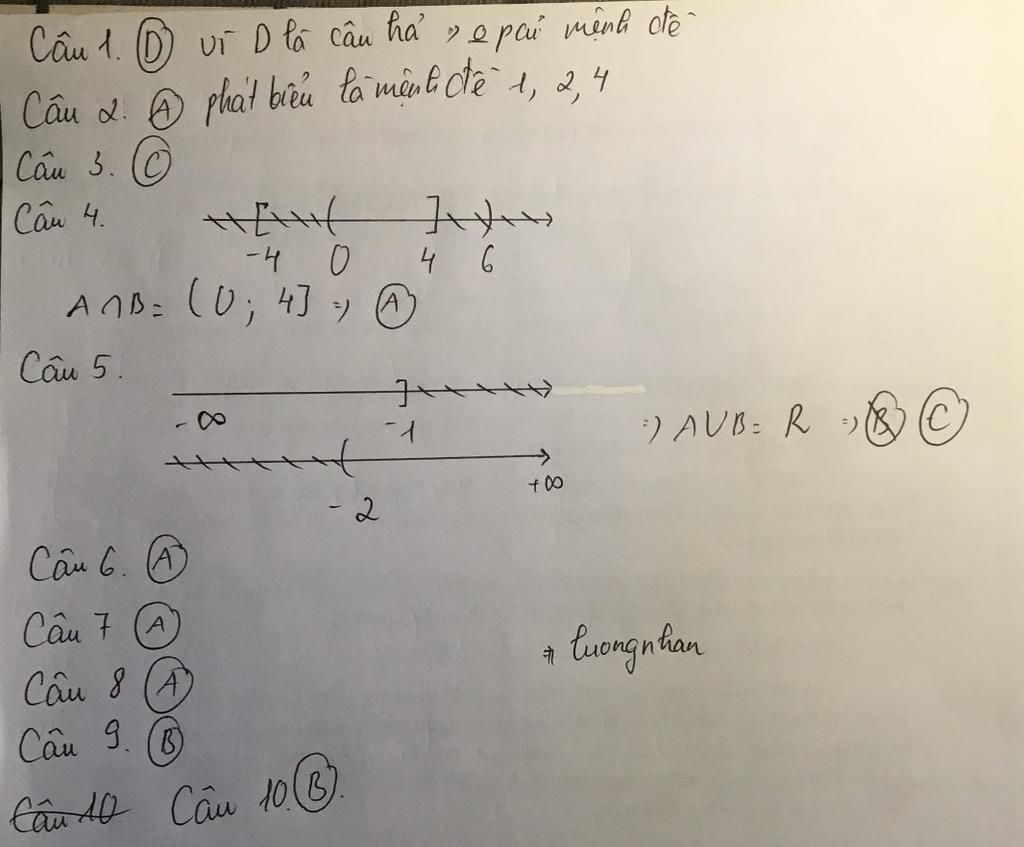 Câu 1. D vì D là câu hỏi => o pải mệnh đề
Câu 2. A phát biểu là mệnh đề 1, 2, 4
Câu 3. C
Câu 4.
-4 0 4 6
A∩B = (0; 4] => A
Câu 5.
-∞ -1
=> A∪B = R => B C
-2 +∞
Câu 6. A
Câu 7 A
# tuongnhan
Câu 8 A
Câu 9. B
Câu 10 Câu 10. B.